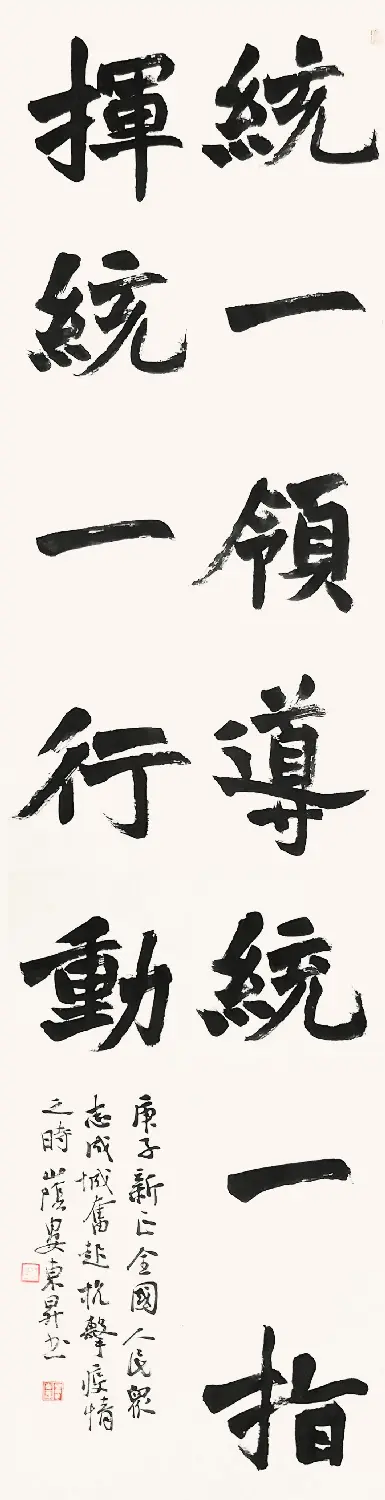 統一領導統一指
揮統一行動
庚子新正全國人民衆
志成城奮赴抗擊疫情
之時 山陰婁東昇书